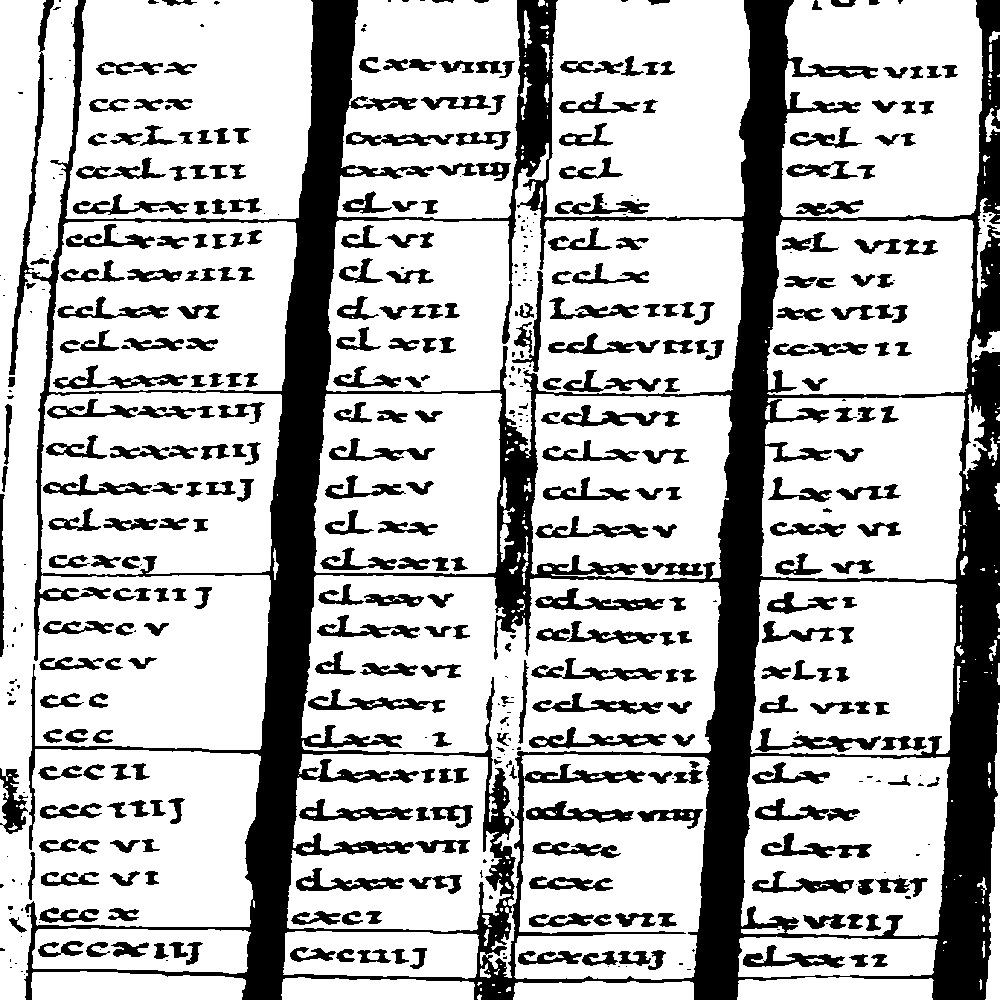 ccxx cxxviiij ccxlii lxxxviii
ccxx cxxviiij cclxi lxxvii
cxliiii cxxxviiij ccl cxlvi
ccxliiii cxxxviiij ccl cxli
cclxxiiii clvi cclx xx
cclxxiiii clvi cclx xlviii
cclxxiiii clvi cclx xcvi
cclxxvi clviii lxxiiij xcviij
cclxxxx clxii cclxviiij ccxxii
cclxxxxiiii clxv cclxvi lv
cclxxxxiiij clxv cclxvi lxiii
cclxxxxiiij clxv cclxvi lxv
cclxxxxiiij clxv cclxvi lxvii
cclxxxxi clxx cclxxv cxxvi
ccxcj clxxii cclxxviiij clvi
ccxciiij clxxv cclxxxi clxi
ccxcv clxxvi cclxxxii lvij
ccxcv clxxvi cclxxxii xlii
ccc clxxxi cclxxxv clviii
ccc clxx i cclxxxv lxxviiij
cccii clxxxiii cclxxxvii clx
ccciiij clxxxiiij cclxxxviiij clxx
cccvi clxxxvii ccxc clxii
cccvi clxxxvij ccxc clxxiiij
cccx cxci ccxcvii lxviiij
cccxiij cxciiij ccxciiij clxxii